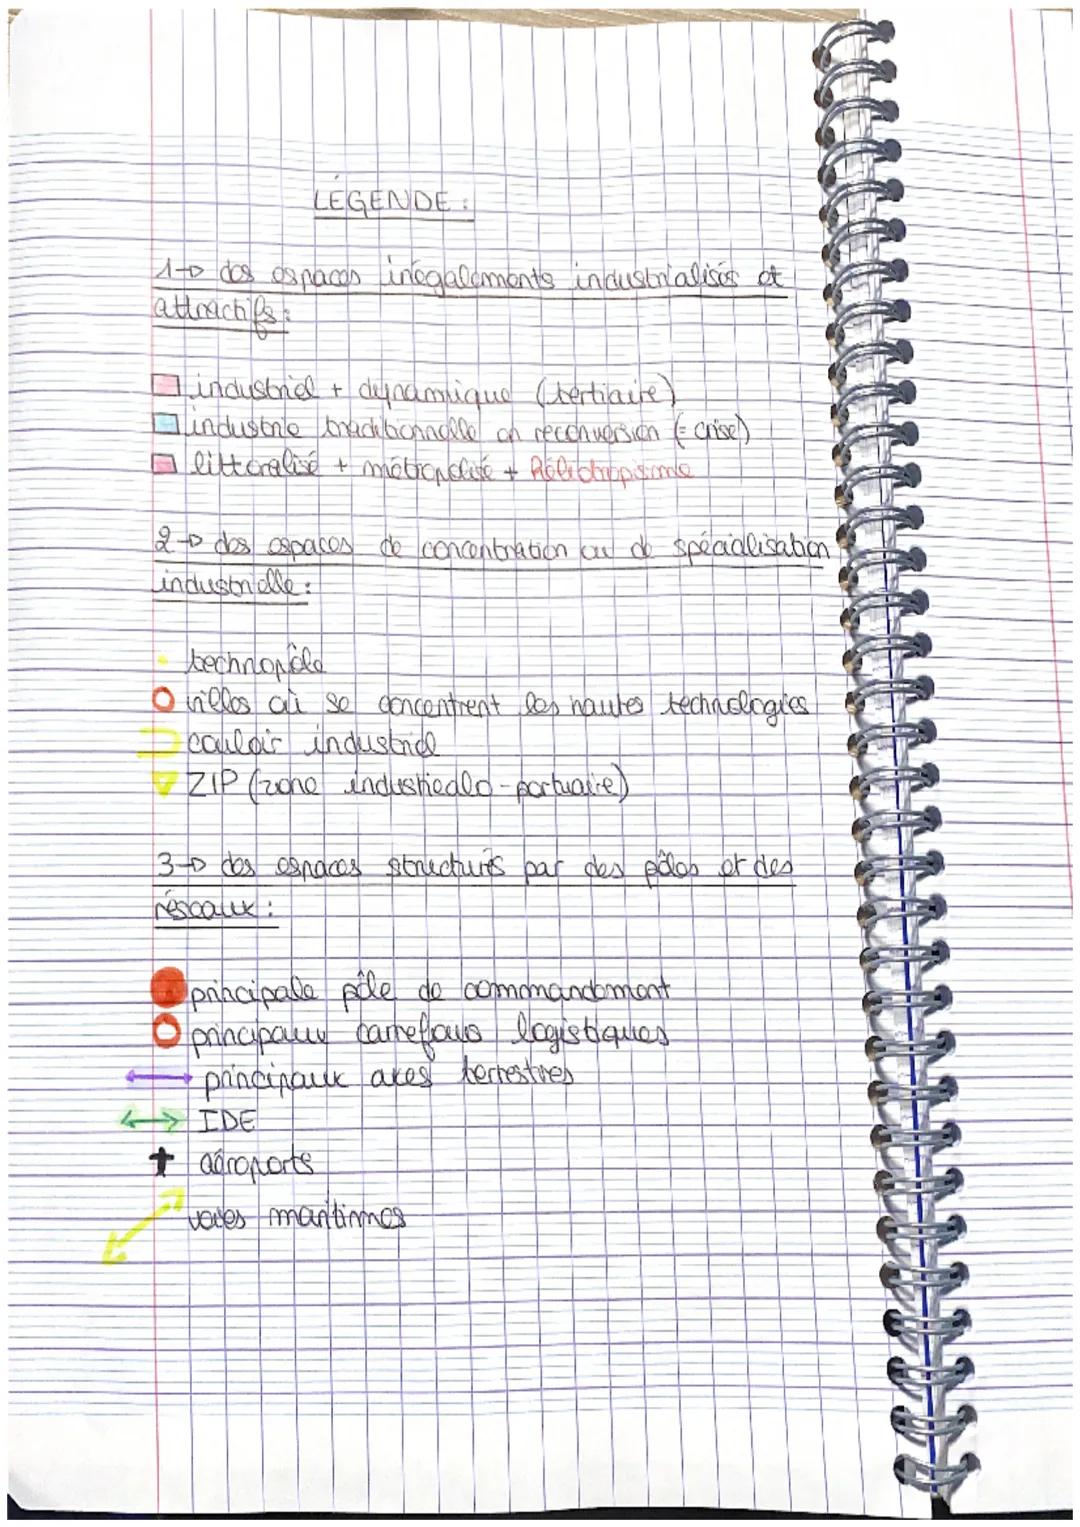 LÉGENDE :
1→ des espaces inégalements industrialisés et
attractifs :
industriel + dynamique (tertiaire)
industrie traditionnelle en reconversion (= crise)
littoralisé + métropolisé + héliotropisme
2→ des espaces de concentration ou de spécialisation
industrielle :
technopôle
villes où se concentrent les hautes technologies
couloir industriel
ZIP (zone industiealo-portuaire)
3→ des espaces structurés par des pôles et des
réseaux :
principale pôle de commandement
principaux carrefours logistiques
principaux axes terrestres
IDE
aéroports
voies maritimes